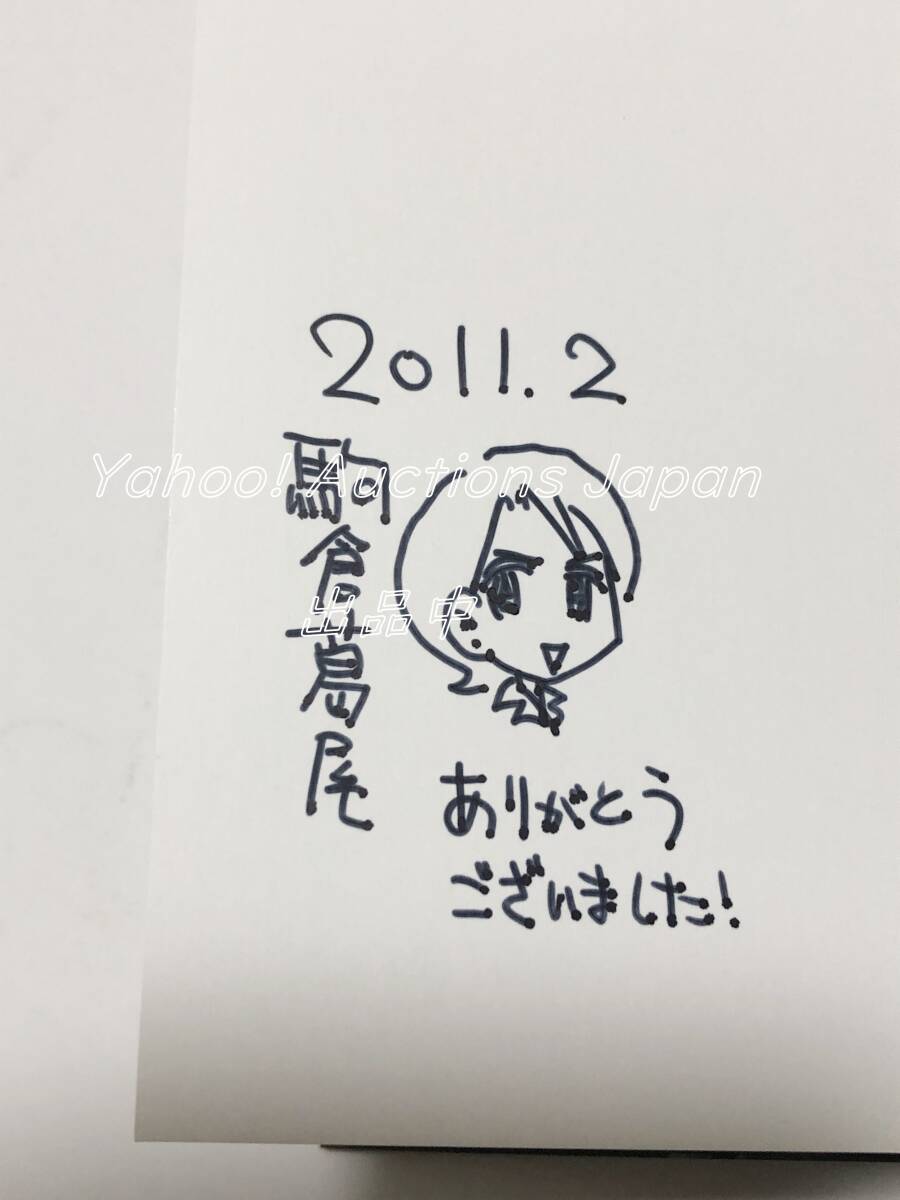 2011.2
駒倉葛尾
ありがとう
ございました!
Yahoo! Auctions Japan
出品中